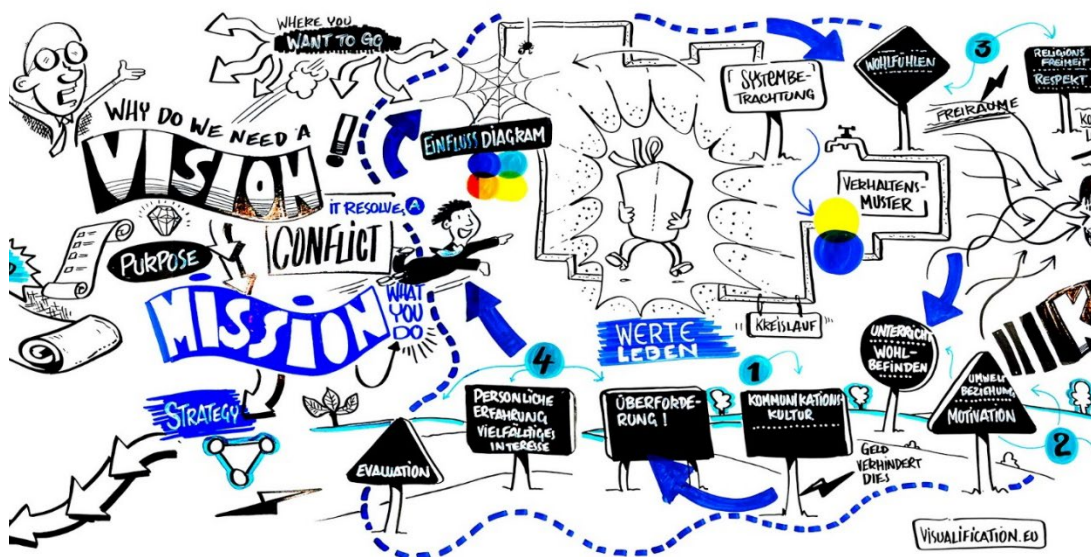 WHERE YOU
WANT TO GO
WHY DO WE NEED A
VISION
!
IT RESOLVES A
CONFLICT
PURPOSE
MISSION
WHAT
YOU
DO
STRATEGY
EINFLUSS DIAGRAM
SYSTEMBE-
TRACHTUNG
WOHLFÜHLEN
3
RELIGIONS
FREIHEIT
RESPEKT
FREIRÄUME
VERHALTENS-
MUSTER
KREISLAUF
WERTE
LEBEN
4
PERSÖNLICHE
ERFAHRUNG
VIELFÄLTIGES
INTERESSE
EVALUATION
ÜBERFORDE-
RUNG!
1
KOMMUNIKATIONS
KULTUR
GELD
VERHINDERT
DIES
UNTERRICHT
WOHL-
BEFINDEN
UMWELT
BEZIEHUNG
MOTIVATION
2
VISUALIFICATION.EU